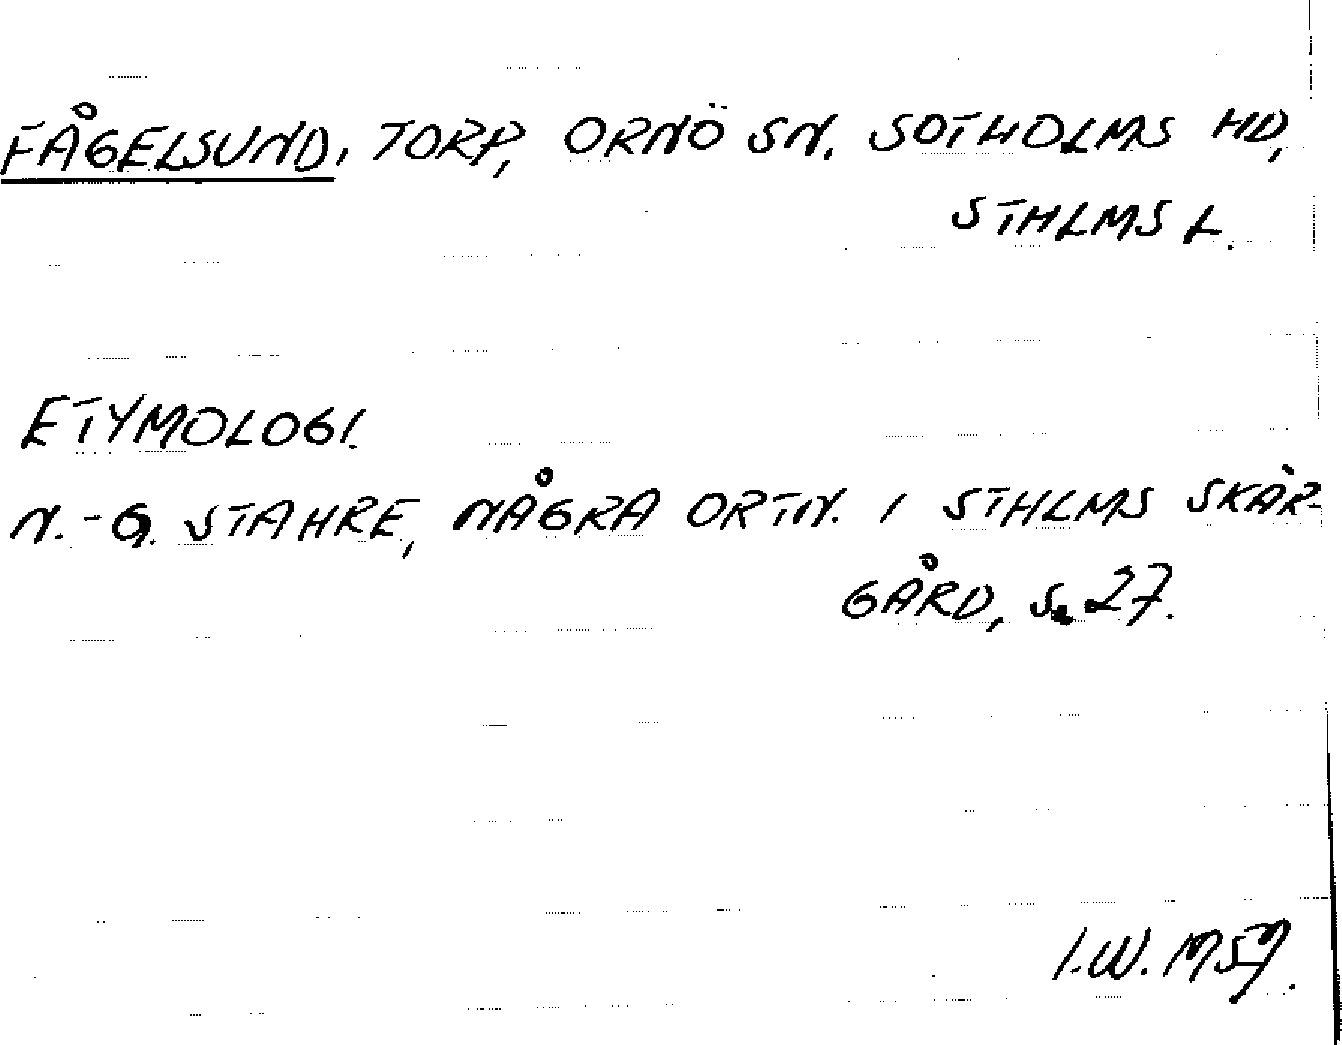 FÅGELSUND, TORP, ORNÖ SN. SOTHOLMS HD,
STHLMS L.
ETYMOLOGI.
N.-G. STAHRE, NÅGRA ORTN. I STHLMS SKÄR-
GÅRD, S. 27.
I.W. 1959.